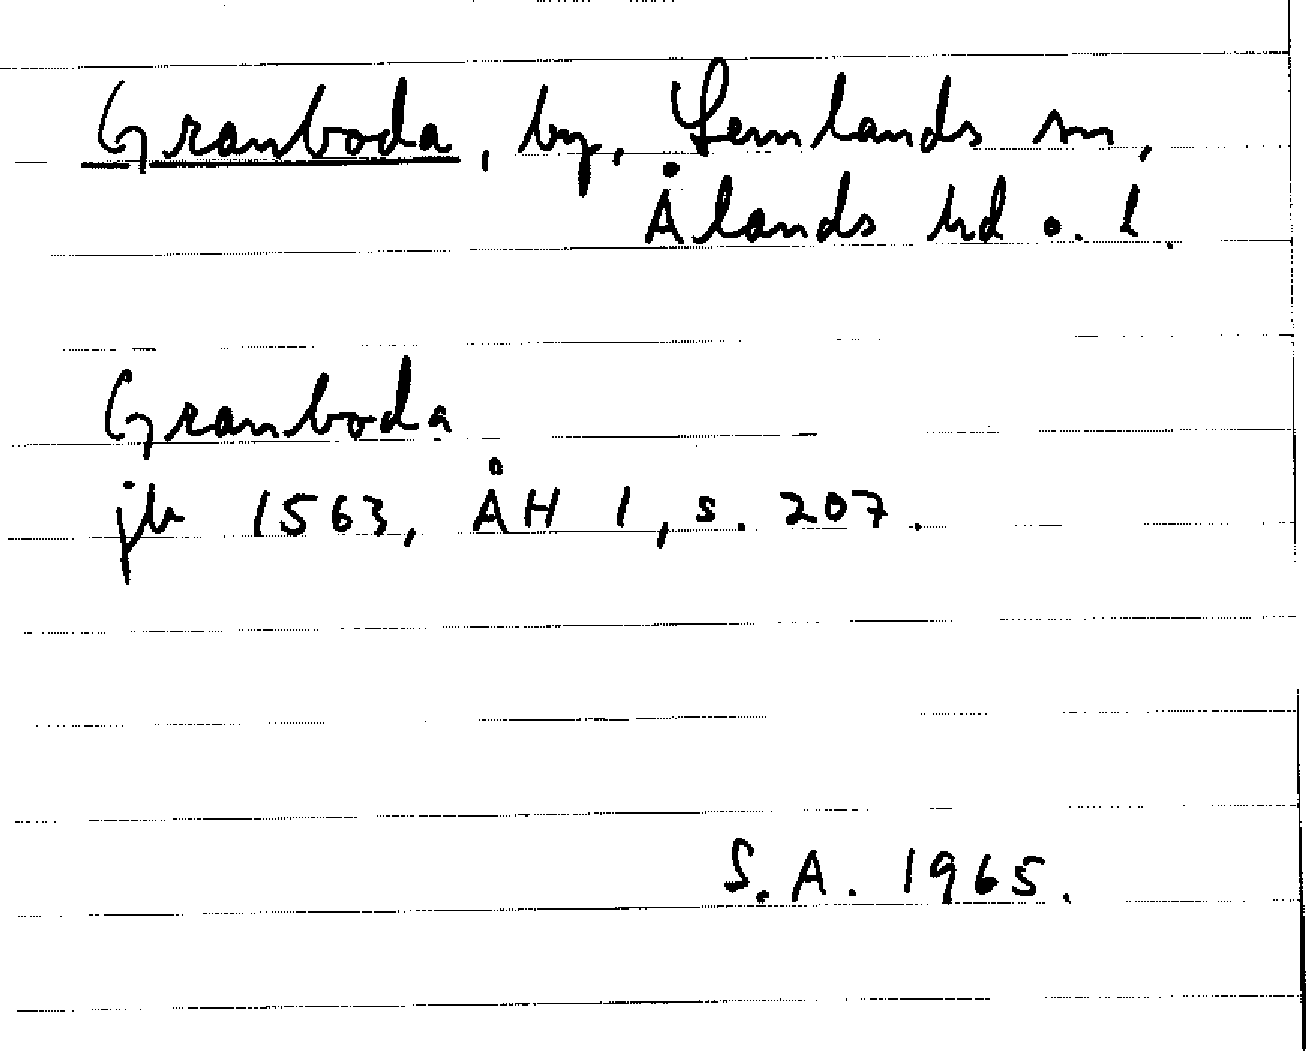 Granboda, by, Lemlands sn,
Ålands hd o. l.
Granboda
jb 1563, ÅH 1, s. 207.
S.A. 1965.